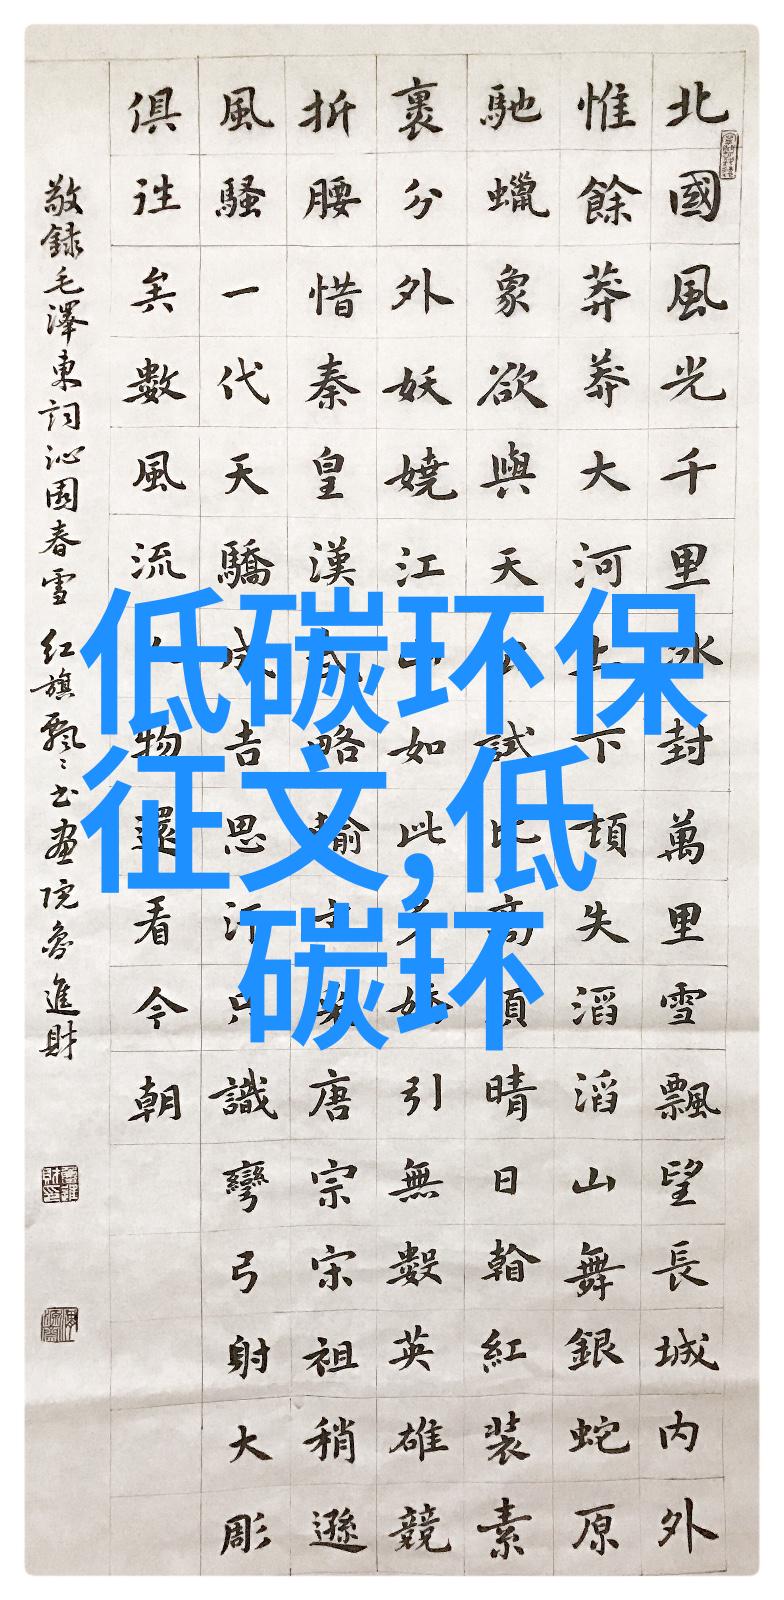 低碳环保
征文,低
碳环
北國風光千里冰封萬里雪飄望長城内外
惟餘莽莽大河上下頓失滔滔山舞銀蛇原
馳蠟象欲與天公試比高須晴日翰紅裝素
裹分外妖嬈江山如此多嬌引無數英雄競
折腰惜秦皇漢武略輸文采唐宗宋祖稍遜
風騷一代天驕成吉思汗只識彎弓射大彫
俱往矣數風流人物還看今朝
敬録毛澤東詞沁園春雪 红旗飄〻书画院魯進財